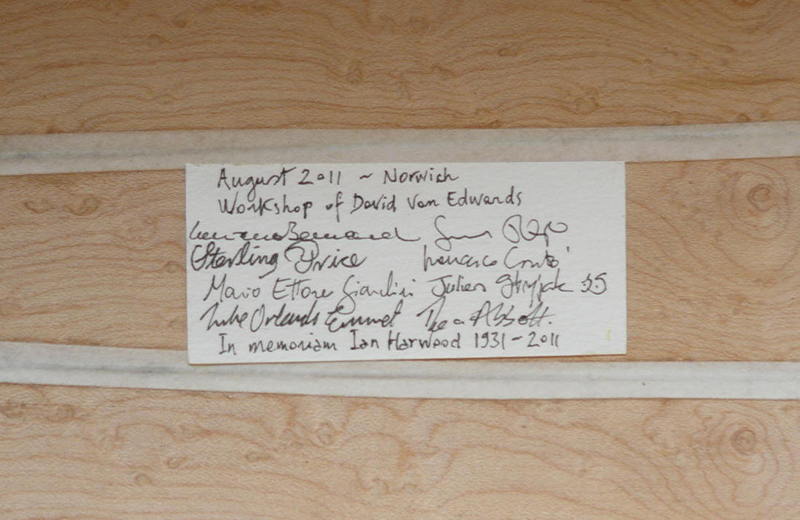 August 2011 ~ Norwich
Workshop of David Van Edwards
Luciano Bernard
Sterling Price Francesco
Mario Ettore Giardini Julien 
Luke Orlando Emmet Thea Abbott.
In memoriam Ian Harwood 1931-2011